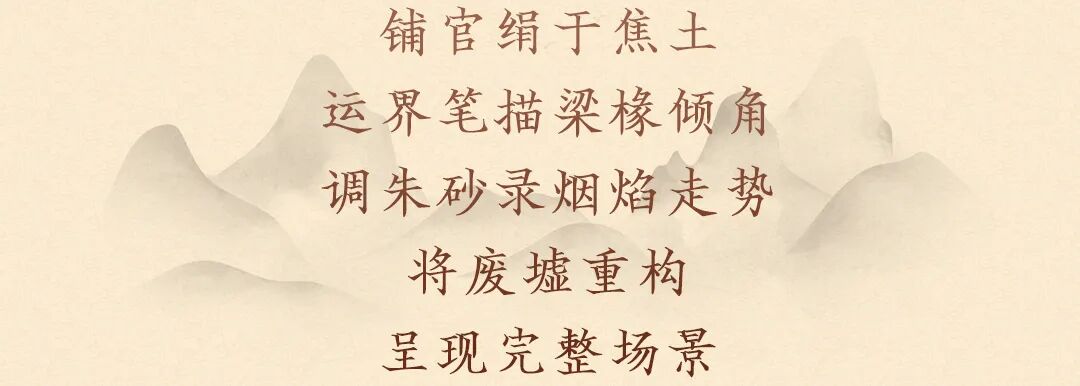 铺官绢于焦土
运界笔描梁椽倾角
调朱砂录烟焰走势
将废墟重构
呈现完整场景